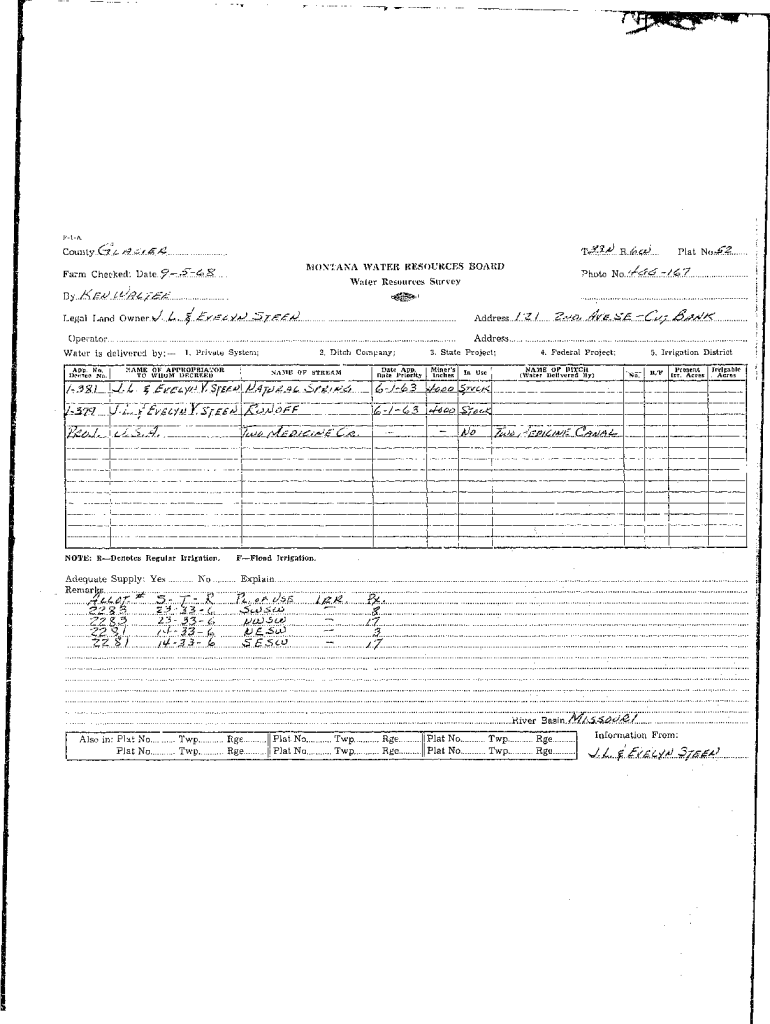 F-1-A
County GLACIER T 33N R 6W Plat No. 52
MONTANA WATER RESOURCES BOARD
Farm Checked: Date 9-5-68 Photo No. 4GG-167
Water Resources Survey
By KEN WALTEE
Legal Land Owner J.L. & EVELYN STEEN Address 121 2ND. AVE SE - CUT BANK
Operator Address
Water is delivered by:— 1. Private System; 2. Ditch Company; 3. State Project; 4. Federal Project; 5. Irrigation District
App. No. Decree No. NAME OF APPROPRIATOR TO WHOM DECREED NAME OF STREAM Date App. Date Priority Miner's Inches In Use NAME OF DITCH (Water Delivered By) No. R/F Present Irr. Acres Irrigable Acres
1-381 J.L. & EVELYN Y. STEEN NATURAL SPRING 6-1-63 4000 STOCK
1-379 J.L. & EVELYN Y. STEEN RUNOFF 6-1-63 4000 STOCK
U.S.A. TWO MEDICINE CR. - NO TWO MEDICINE CANAL
NOTE: R—Denotes Regular Irrigation. F—Flood Irrigation.
Adequate Supply: Yes No Explain
Remarks
ALLOT. # S - T - R PL. OF USE IRR. Px.
2283 23-33-6 SWSW - 8
2283 23-33-6 NWSW - 17
2281 14-33-6 NESW - 3
2281 14-33-6 SESW - 17
River Basin MISSOURI
Also in: Plat No. Twp. Rge. Plat No. Twp. Rge. Plat No. Twp. Rge. Information From:
Plat No. Twp. Rge. Plat No. Twp. Rge. Plat No. Twp. Rge. J.L. & EVELYN STEEN